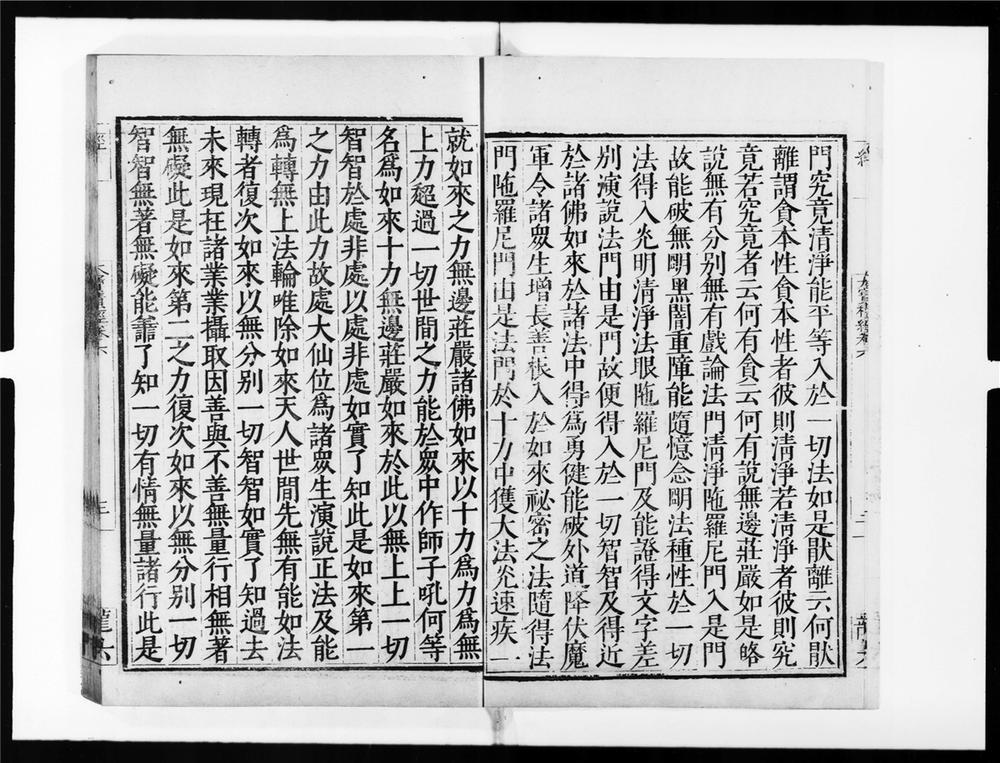 門究竟清淨能平等入於一切法如是猒離云何猒
離謂貪本性貪本性者彼則清淨若清淨者彼則究
竟若究竟者云何有貪云何有說無邊莊嚴如是略
說無有分別無有戲論法門清淨陁羅尼門入是門
故能破無明黑闇重障能隨憶念明法種性於一切
法得入光明清淨法眼陁羅尼門及能證得文字差
別演說法門由是門故便得入於一切智智及得近
於諸佛如來於諸法中得為勇健能破外道降伏魔
軍令諸眾生增長善根入於如來祕密之法隨得法
門陁羅尼門由是法門於十力中獲大法光速疾一
就如來之力無邊莊嚴諸佛如來以十力為力為無
上力超過一切世間之力能於眾中作師子吼何等
名為如來十力無邊莊嚴如來於此以無上上一切
智智於處非處以處非處如實了知此是如來第一
之力由此力故處大仙位為諸眾生演說正法及能
為轉無上法輪唯除如來天人世間先無有能如法
轉者復次如來以無分別一切智智如實了知過去
未來現在諸業業攝取因善與不善無量行相無著
無礙此是如來第二之力復次如來以無分別一切
智智無著無礙能善了知一切有情無量諸行此是
龍六